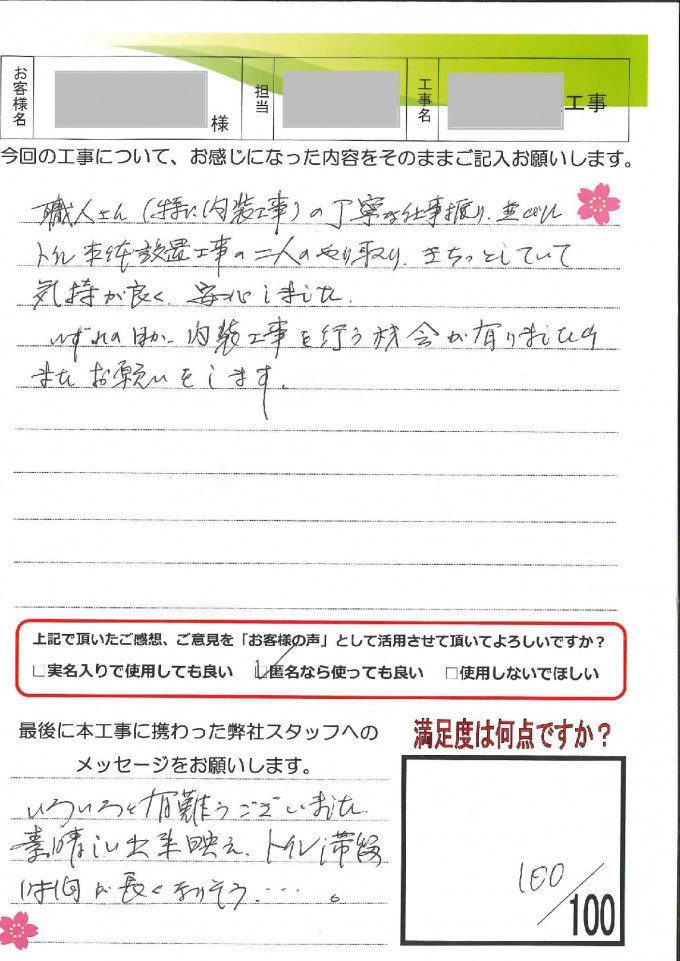 お客様名
様
担当
工事名
工事
今回の工事について、お感じになった内容をそのままご記入お願いします。
職人さん(特に内装工事)の丁寧な仕事振り、並びに
トイレ本体設置工事の二人のやり取り、きちっとしていて
気持が良く、安心しました。
いずれの日か、内装工事を行う機会が有りましたら
またお願いをします。
上記で頂いたご感想、ご意見を「お客様の声」として活用させて頂いてよろしいですか?
□実名入りで使用しても良い ☑匿名なら使っても良い □使用しないでほしい
最後に本工事に携わった弊社スタッフへの
メッセージをお願いします。
いろいろと有難うございました。
素晴しい出来映え、トイレ滞留
時間が長くなりそう・・・。
満足度は何点ですか?
100/100